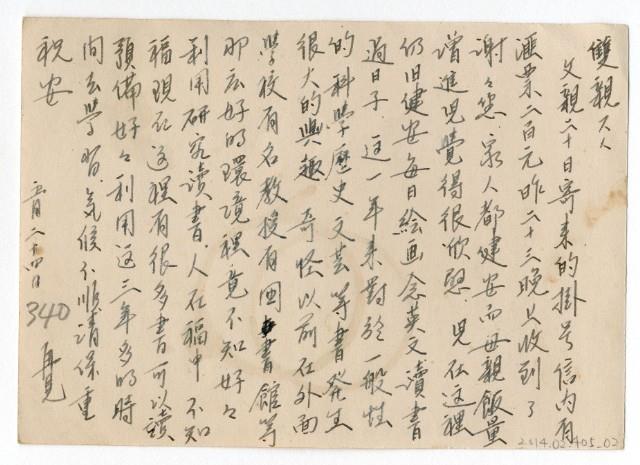 雙親大人
父親二十日寄来的掛号信内有
滙票二百元昨二十三晚上收到了
謝々您家人都健安而母親飯量
增進児覺得很欣慰児在这裡
仍旧健安每日絵画念英文讀書
过日子这一年来對於一般性
的科学歷史文芸等書発生
很大的興趣奇怪以前在外面
学校有名教授有図書館等
那么好的環境裡竟不知好々
利用研究讀書人在福中不知
福現在这裡有很多書可以讀
預備好々利用这三年多的時
间去学習気候不順請保重
祝安
再見
五月二十四日
340
2014.02.405_023